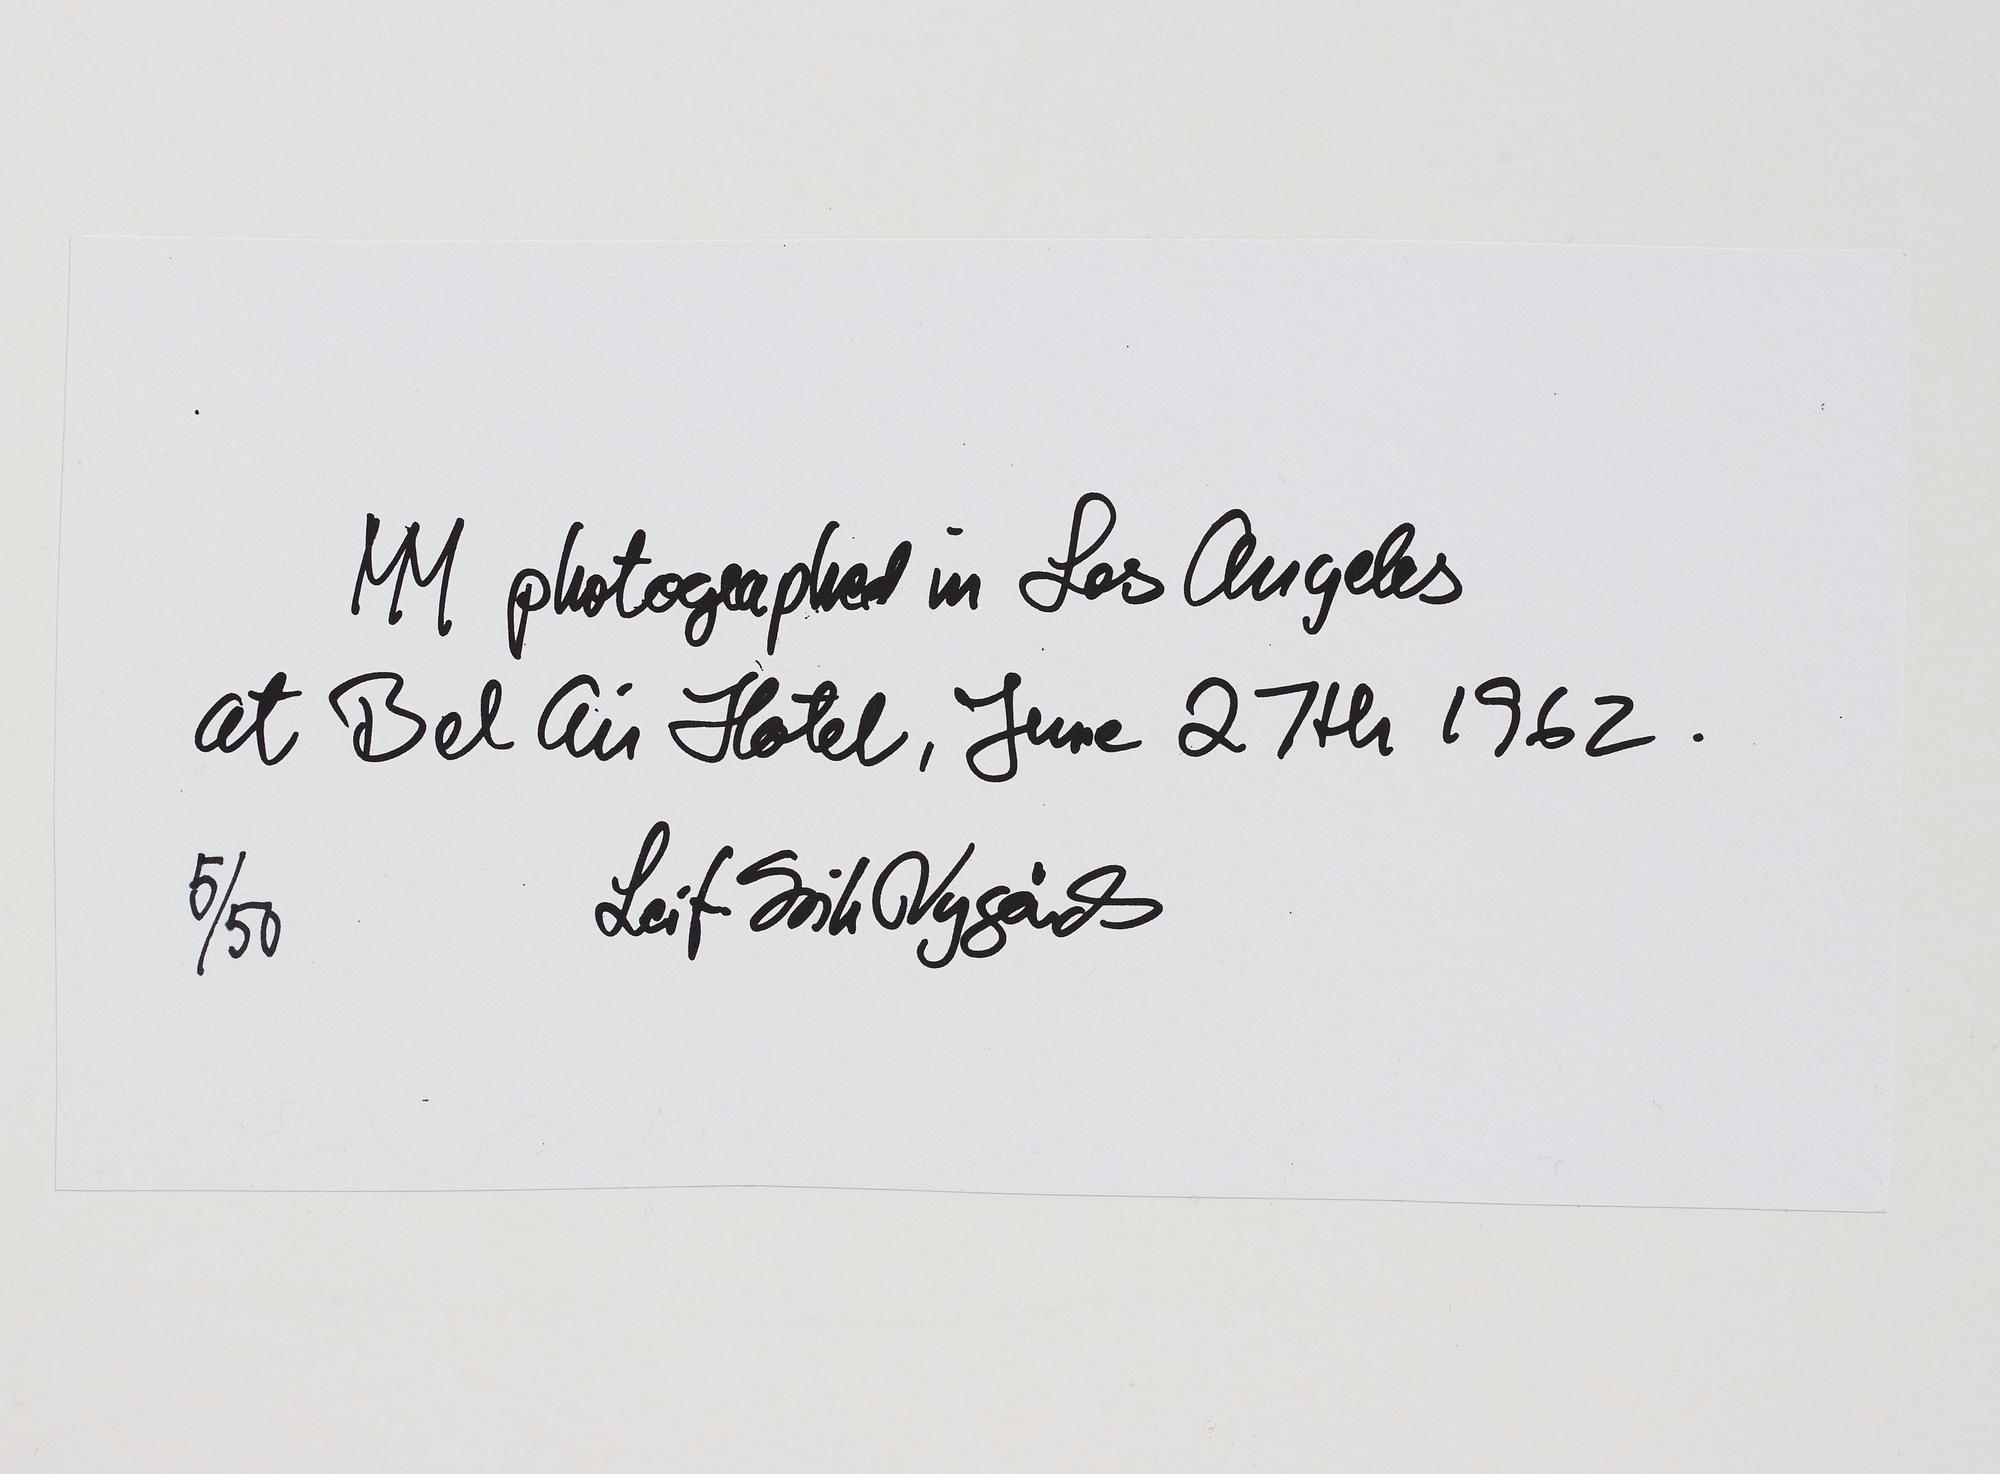 MM photographed in Los Angeles
at Bel Air Hotel, June 27th 1962.
5/50 Leif-Erik Nygårds